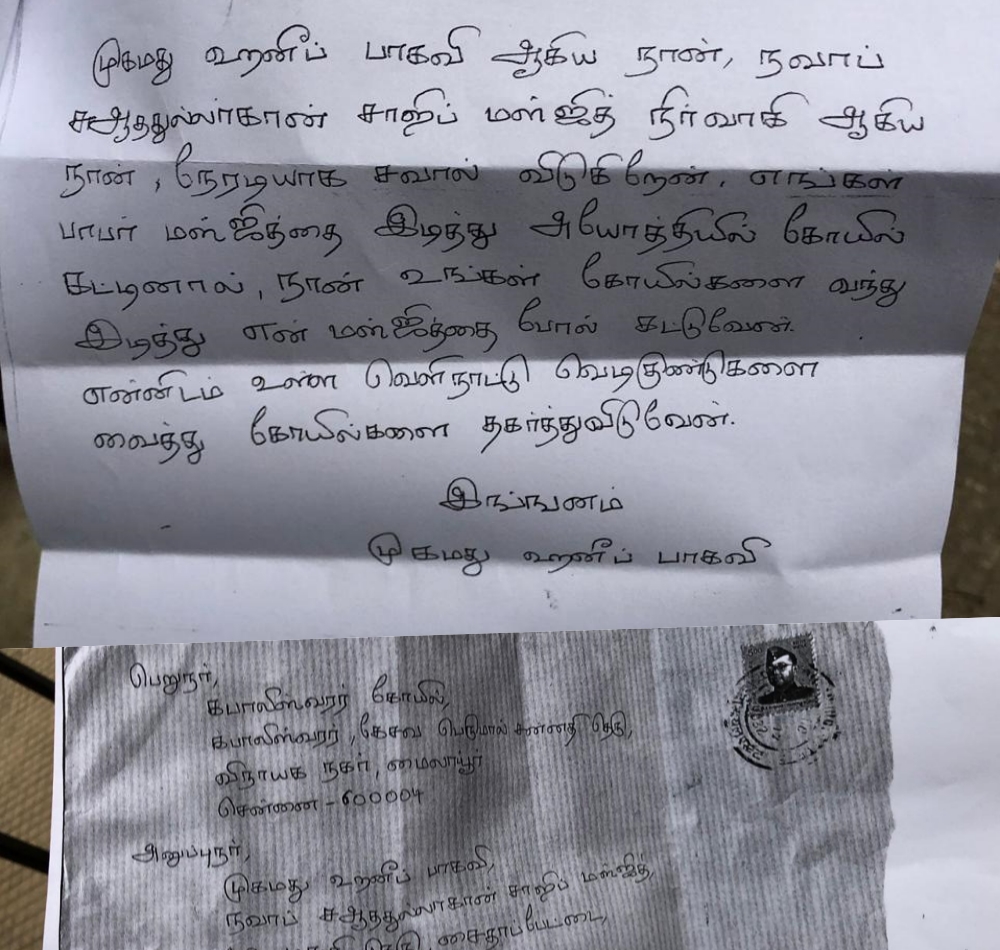 முகமது ஹனீப் பாகவி ஆகிய நான், நவாப்
சஆதத்துல்லாகான் சாஹிப் மஸ்ஜித் நிர்வாகி ஆகிய
நான், நேரடியாக சவால் விடுகிறேன். எங்கள்
பாபர் மஸ்ஜித்தை இடித்து அயோத்தியில் கோயில்
கட்டினால், நான் உங்கள் கோயில்களை வந்து
இடித்து என் மஸ்ஜித்தை போல் கட்டுவேன்.
என்னிடம் உள்ள வெளிநாட்டு வெடிகுண்டுகளை
வைத்து கோயில்களை தகர்த்துவிடுவேன்.
இங்ஙனம்
முகமது ஹனீப் பாகவி
பெறுநர்,
கபாலிஸ்வரர் கோயில்,
கபாலிஸ்வரர், கேசவ பெருமால் சன்னதி தெரு,
விநாயக நகர், மைலாப்பூர்
சென்னை - 600004
அனுப்புநர்,
முகமது ஹனீப் பாகவி,
நவாப் சஆதத்துல்லாகான் சாஹிப் மஸ்ஜித்,
சைதாப்பேட்டை,